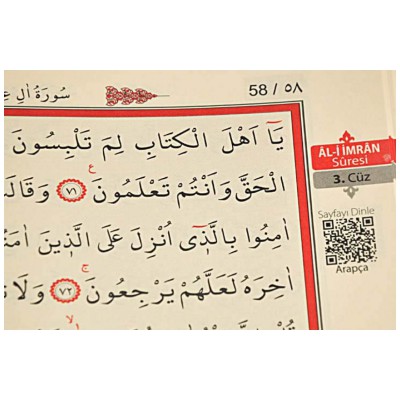 سُورَةُ اٰلِ
58 / ٥٨
يَٓا اَهْلَ الْكِتَابِ لِمَ تَلْبِسُونَ
الْحَقَّ وَاَنْتُمْ تَعْلَمُونَ ع ﴿٧١﴾ وَقَالَتْ
اٰمِنُوا بِالَّذ۪ٓي اُنْزِلَ عَلَى الَّذ۪ينَ اٰمَنُ
اٰخِرَهُ لَعَلَّهُمْ يَرْجِعُونَ ج ﴿٧٢﴾ وَلَا
ÂL-İ İMRÂN
Sûresi
3. Cüz
Sayfayı Dinle
Arapça